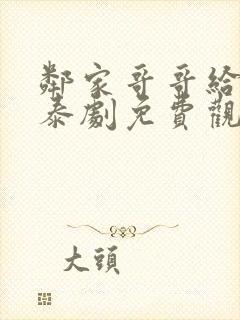 鄰家哥哥給
泰劇免費觀
大頭